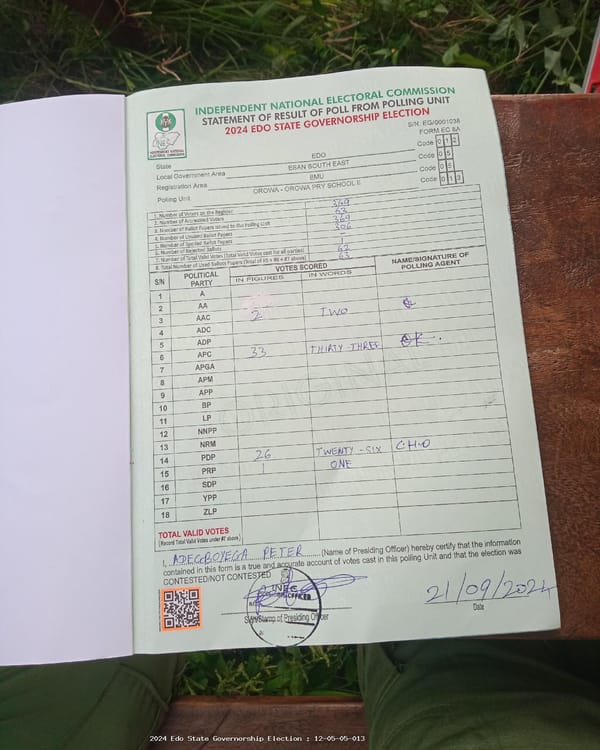 INEC
INDEPENDENT NATIONAL ELECTORAL COMMISSION
INDEPENDENT NATIONAL ELECTORAL COMMISSION
STATEMENT OF RESULT OF POLL FROM POLLING UNIT
2024 EDO STATE GOVERNORSHIP ELECTION
S/N. EG/0001038
FORM EC 8A
State EDO Code 012
Local Government Area ESAN SOUTH EAST Code 05
Registration Area EMU Code 05
Polling Unit OROWA - OROWA PRY SCHOOL E Code 013
1. Number of Voters on the Register 369
2. Number of Accredited Voters 63
3. Number of Ballot Papers Issued to the Polling Unit 369
4. Number of Unused Ballot Papers 306
5. Number of Spoiled Ballot Papers -
6. Number of Rejected Ballots
7. Number of Total Valid Votes (Total Valid Votes cast for all parties) 62
8. Total Number of Used Ballots Papers (Total of #5 + #6 + #7 above) 63
S/N POLITICAL PARTY VOTES SCORED NAME/SIGNATURE OF POLLING AGENT
IN FIGURES IN WORDS
1 A
2 AA
3 AAC 2 TWO
4 ADC
5 ADP
6 APC 33 THIRTY-THREE
7 APGA
8 APM
9 APP
10 BP
11 LP
12 NNPP
13 NRM
14 PDP 26 TWENTY-SIX
15 PRP 1 ONE
16 SDP
17 YPP
18 ZLP
TOTAL VALID VOTES
(Record Total Valid Votes under #7 above)
I, ADEGBOYEGA PETER (Name of Presiding Officer) hereby certify that the information
contained in this form is a true and accurate account of votes cast in this polling Unit and that the election was
CONTESTED/NOT CONTESTED
INEC
21/09/2024
Sign/Stamp of Presiding Officer
Date
2024 Edo State Governorship Election : 12-05-05-013